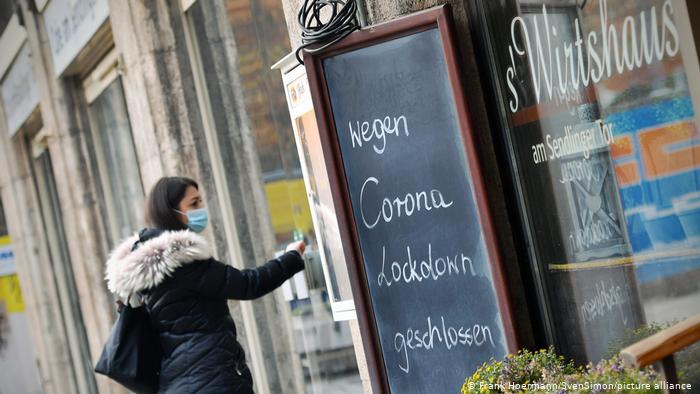 wegen
Corona
Lockdown
geschlossen
s'Wirtshaus
am Sendlinger Tor
© Frank Hoermann/SvenSimon/picture alliance